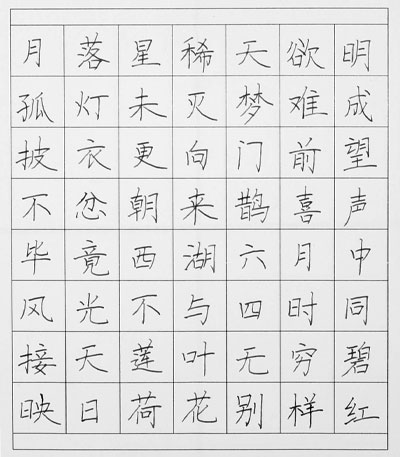 月落星稀天欲明
孤灯未灭梦难成
披衣更向门前望
不忿朝来鹊喜声
毕竟西湖六月中
风光不与四时同
接天莲叶无穷碧
映日荷花别样红